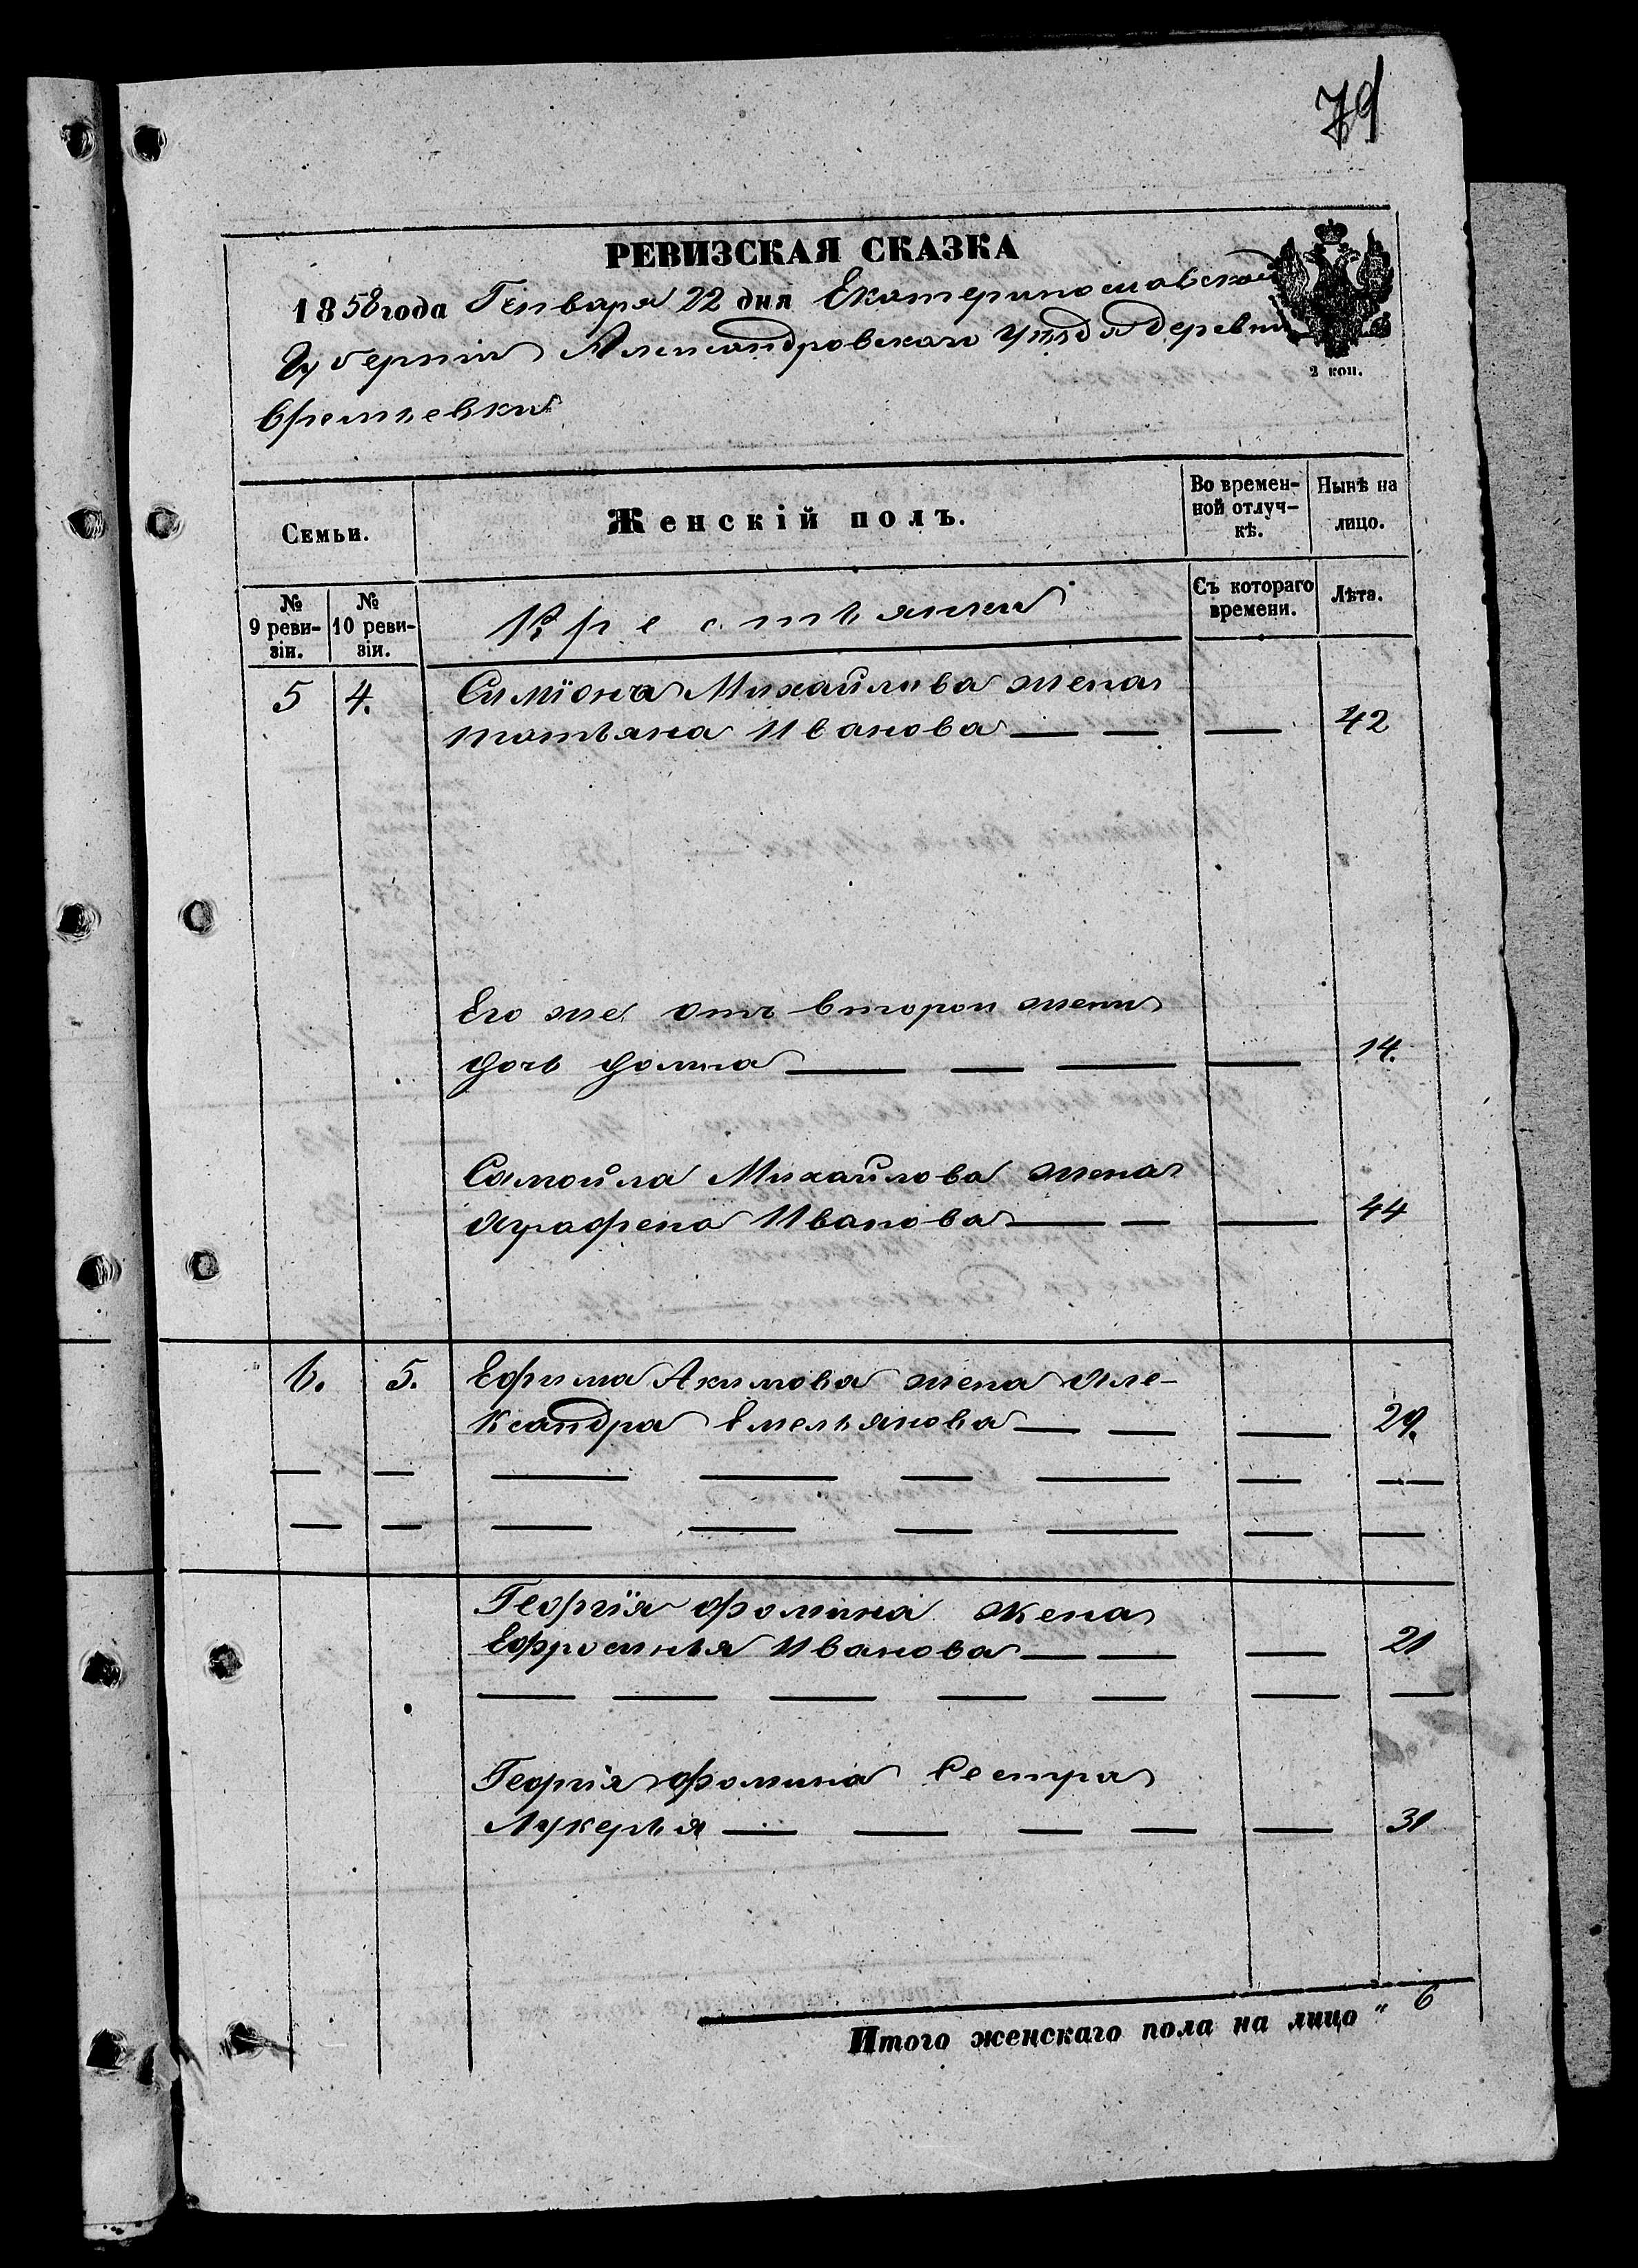 79
РЕВИЗСКАЯ СКАЗКА
1858 года Генваря 22 дня Екатеринославской
Губернии Александровскаго уезда деревни
Времьевки
2 коп.
Семьи.
Женскій полъ.
Во времен-
ной отлуч-
кѣ.
Нынѣ на
лицо.
№
9 реви-
зіи.
№
10 реви-
зіи.
Крестьянки
Съ котораго
времени.
Лѣта.
5 4. Симіона Михайлова жена
татьяна Иванова — — — 42
Его же отъ второй жены
дочь домна — — — — 14.
Самойла Михайлова жена
Аграфена Иванова — — — 44
6. 5. Ефима Акимова жена Але-
ксандра Емельянова — — — 29.
Георгія фомина жена
Ефросинья Иванова — — — 21
Георгія фомина сестра
Лукерья — — — — — 31
Итого женскаго пола на лицо „ 6